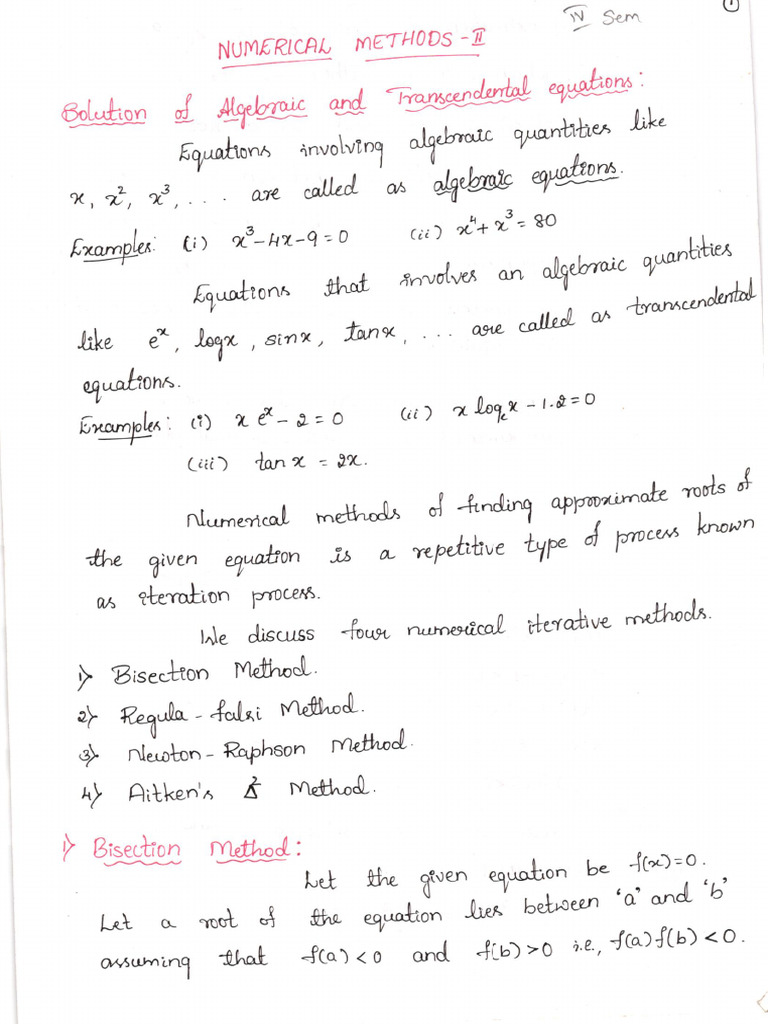 ① 
IV Sem
NUMERICAL METHODS - II
Solution of Algebraic and Transcendental equations:
Equations involving algebraic quantities like
x, x², x³, ... are called as algebraic equations.
Examples: (i) x³-4x-9=0 (ii) x⁴+x³=80
Equations that involves an algebraic quantities
like eˣ, logx, sinx, tanx, ... are called as transcendental
equations.
Examples: (i) x eˣ - 2 = 0 (ii) x logₑx - 1.2 = 0
(iii) tan x = 2x.
Numerical methods of finding approximate roots of
the given equation is a repetitive type of process known
as iteration process.
We discuss four numerical iterative methods.
1) Bisection Method.
2) Regula-falsi Method.
3) Newton-Raphson Method.
4) Aitken's Δ² Method.
1) Bisection Method:
Let the given equation be f(x)=0.
Let a root of the equation lies between 'a' and 'b'
assuming that f(a)<0 and f(b)>0 i.e., f(a)f(b)<0.